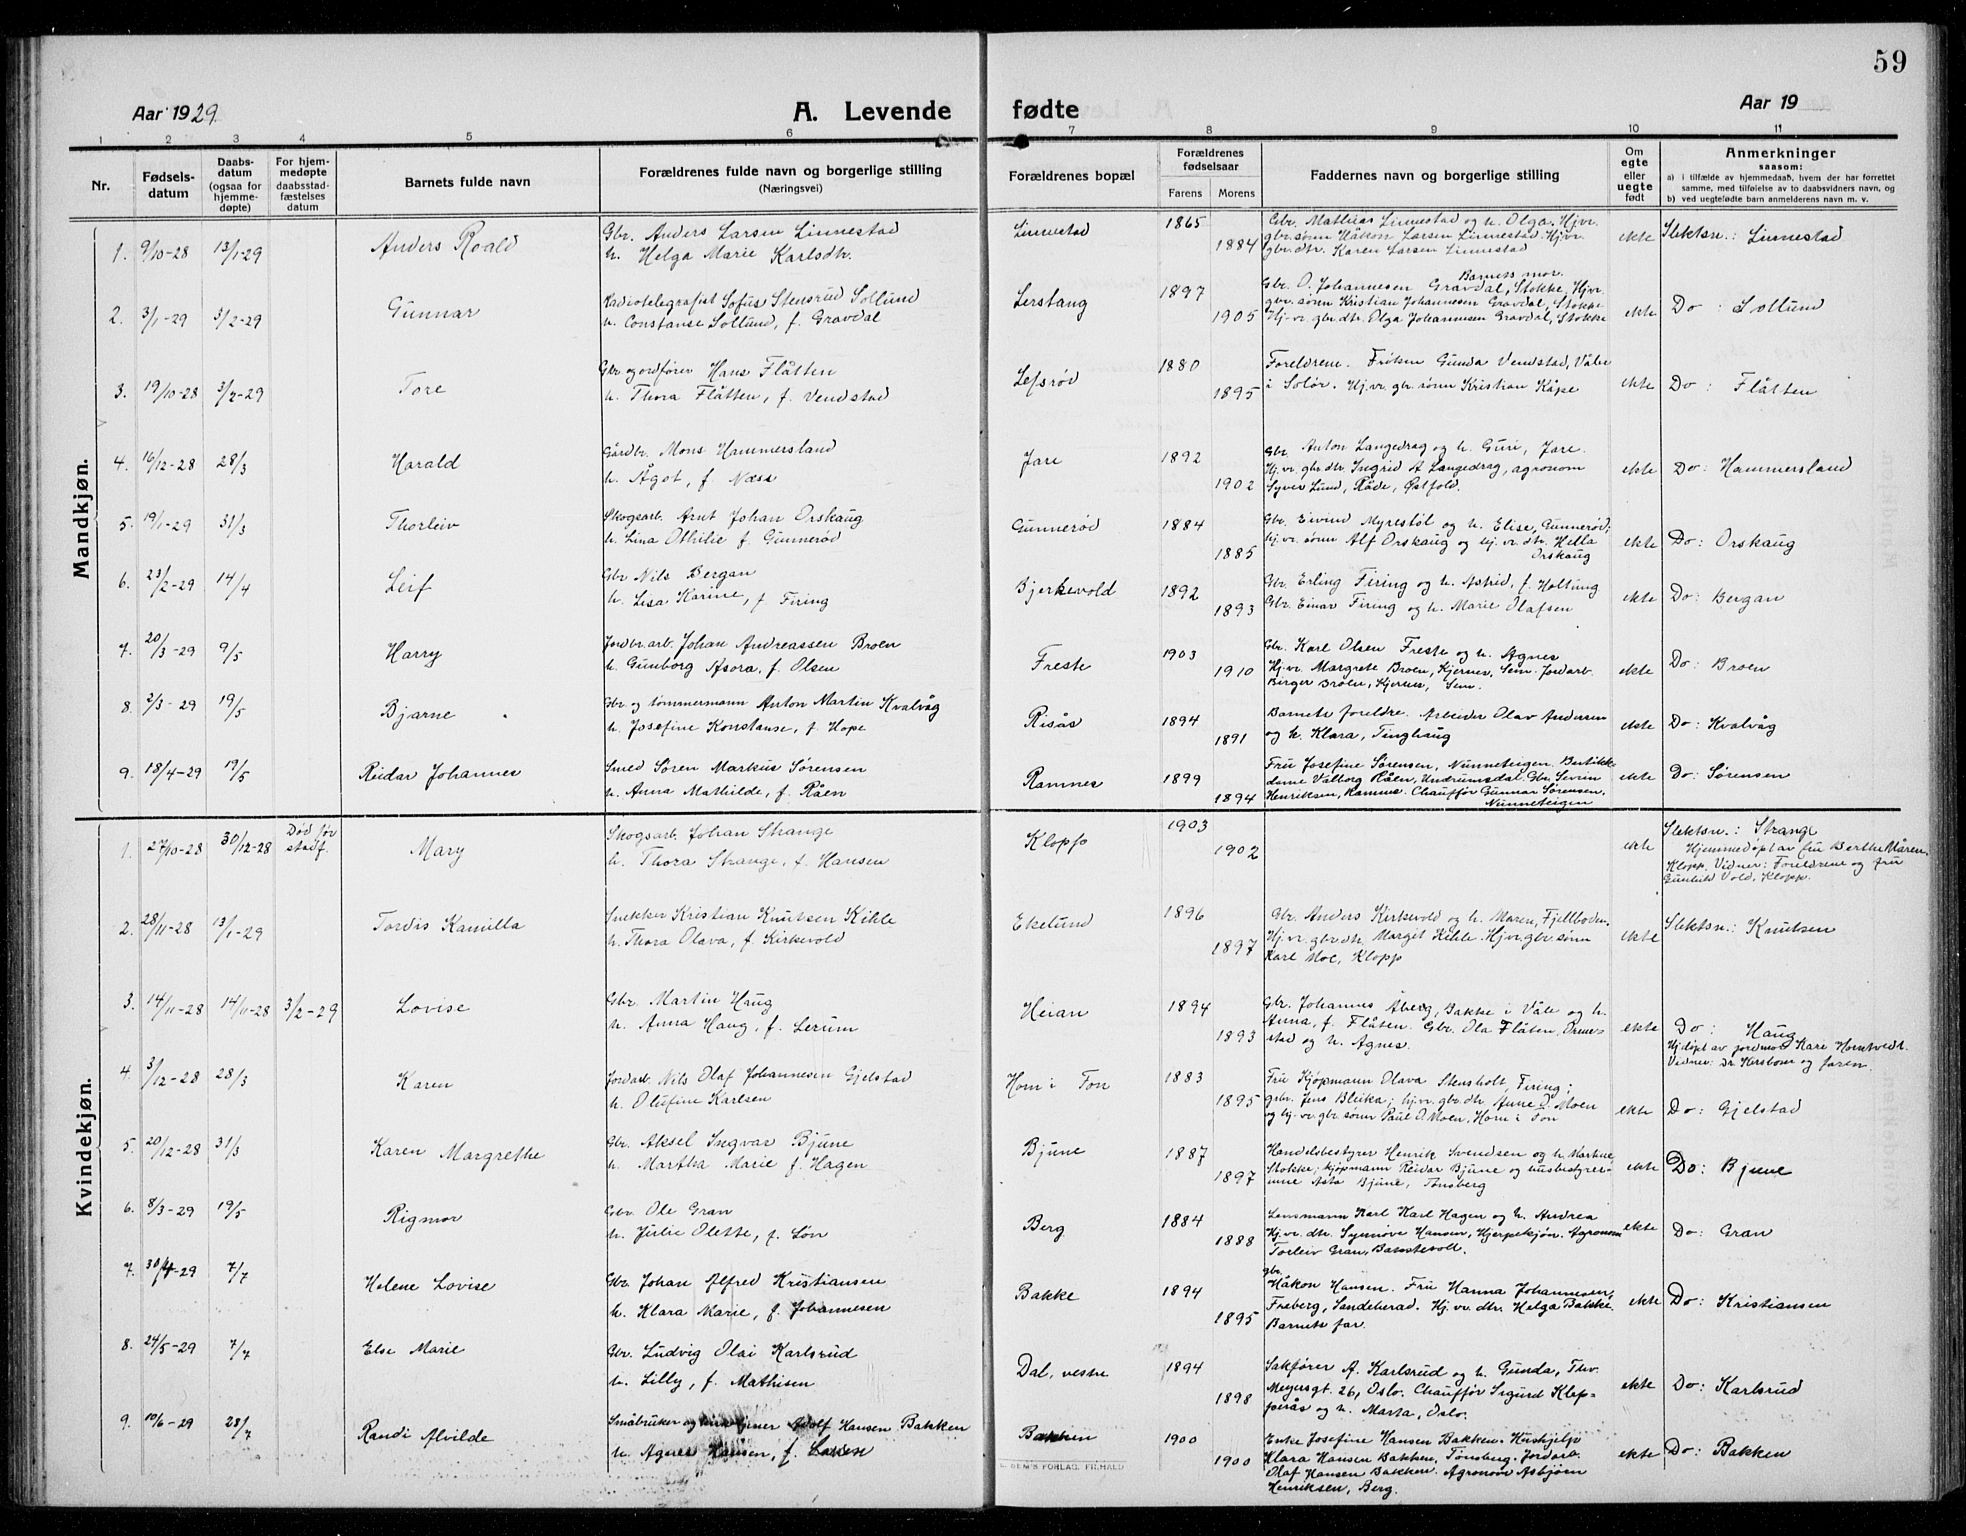 59
Aar 1929 A. Levende fødte Aar 19
1 2 3 4 5 6 7 8 9 10 11
Nr. Fødsels-datum Daabs-datum (ogsaa for hjemme-døpte) For hjem-medøpte daabsstad-fæstelses datum Barnets fulde navn Forældrenes fulde navn og borgerlige stilling (Næringsvei) Forældrenes bopæl Forældrenes fødselsaar Farens Morens Faddernes navn og borgerlige stilling Om egte eller uegte født Anmerkninger saasom: a) i tilfælde av hjemmedaab, hvem der har forrettet samme, med tilføielse av to daabsvidners navn, og b) ved uegtefødte barn anmelderens navn m. v.
Mandkjøn.
1. 9/10-28 13/1-29 Anders Roald
Gbr. Anders Larsen Linnestad
h. Helga Marie Karlsdtr.
Linnestad 1865 1884
Gbr. Mathias Linnestad og h. Olga. Hj.vr.
gbr.sønn Håkon Larsen Linnestad. Hj.vr.
gbr.dtr. Karen Larsen Linnestad
ekte Slektsn.: Linnestad
2. 3/1-29 3/2-29 Gunnar
Radiotelegrafist Sofus Stensrud Sollund
h. Constanse Sollund, f. Gravdal
Lerstang 1897 1905
Barnets mor.
Gbr. O. Johannesen Gravdal, Stokke, Hj.vr.
gbr.sønn Kristian Johannesen Gravdal, Stokke
Hj.vr. gbr.dtr. Olga Johannesen Gravdal, Stokke
ekte Do: Sollund
3. 19/10-28 3/2-29 Tore
Gbr og ordfører Hans Flåtten
h. Thora Flåtten, f. Vendstad
Lefsrød 1880 1895
Foreldrene. Frøken Gunda Vendstad, Våler
i Solør. Hj.vr. gbr.sønn Kristian Kåpe
ekte Do: Flåtten
4. 16/12-28 28/3 Harald
Gårdbr. Mons Hammersland
h. Ågot, f. Næss
Jare 1892 1902
Gbr. Anton Langedrag og h. Guri, Jare.
Hj.vr. gbr.dtr. Ingrid A Langedrag, agronom
Syver Lund, Råde, Østfold.
ekte Do: Hammersland
5. 19/1-29 31/3 Thorleiv
Skogsarb. Arnt Johan Orskaug
h. Lina Othilie f. Gunnerød
Gunnerød 1884 1885
Gbr. Eivind Myrestøl og h. Elise, Gunnerød;
hj.vr. sønn Alf Orskaug og hj.vr. dtr. Hella
Orskaug
ekte Do: Orskaug
6. 23/2-29 14/4 Leif
Gbr Nils Bergan
h. Lisa Karine, f Firing
Bjerkevold 1892 1893
Gbr. Erling Firing og h. Astrid, f. Holtung
Gbr. Einar Firing og h. Marie Olafsen
ekte Do: Bergan
7. 20/3-29 9/5 Harry
Jordbr.arb. Johan Andreassen Broen
h. Gunborg Asora, f. Olsen
Freste 1903 1910
Gbr. Karl Olsen Freste og h. Agnes
Hj.vr Margrete Broen, Kjernes, Sem. Jordarb.
Birger Broen, Kjernes, Sem.
ekte Do: Broen
8. 2/3-29 19/5 Bjarne
Gbr og tømmermann Anton Martin Kvalvåg
h. Josefine Konstanse, f. Hope
Risås 1894 1891
Barnets foreldre. Arbeider Olav Andersen
og h. Klara, Tinghaug
ekte Do: Kvalvåg
9. 18/4-29 19/5 Reidar Johannes
Smed Søren Markus Sørensen
h. Anna Mathilde, f. Råen
Ramnes 1899 1894
Fru Josefine Sørensen, Nunneteigen. Butikk-
dame Valborg Råen, Undrumsdal. Gbr. Sevrin
Henriksen, Ramnes. Chauffør Gunnar Sørensen,
Nunneteigen
ekte Do: Sørensen
Kvindekjøn.
1. 27/10-28 30/12-28 Død før stadf. Mary
Skogsarb. Johan Strange
h. Thora Strange, f. Hansen
Klopp 1903 1902
ekte Slektsn.: Strange
Hjemmedøpt av fru Berthe Maren
Klopp. Vidner: Foreldrene og fru
Gunhild Vold, Klopp.
2. 28/11-28 13/1-29 Tordis Kamilla
Snekker Kristian Knutsen Kihle
h. Thora Olava, f. Kirkevold
Ekelund 1896 1897
Gbr. Anders Kirkevold og h. Maren, Fjellboden.
Hj.vr. gbr.dtr. Margit Kihle. Hj.vr.gbr.sønn
Karl Moe, Klopp
ekte Slektsn.: Knutsen
3. 14/11-28 14/11-28 3/2-29 Lovise
Gbr. Martin Haug
h. Anna Haug, f. Lerum
Heian 1894 1893
Gbr. Johannes Åberg, Bakke i Våle og h.
Anna, f. Flåten. Gbr. Ola Flåten,
og h. Agnes.
ekte Do: Haug
Hj.døpt av jordmor Kari Horntvedt.
Vidner: Dr. Kirsbom og faren.
4. 3/12-28 28/3 Karen
Jordarb. Nils Olaf Johannesen Gjelstad
h. Olufine Karlsen
Hom i Ton 1883 1895
Fru Kjøpmann Olava Stensholt, Firing;
gbr. Jens Bleika; hj.vr. gbr.dtr. Anne O. Moen
og hj. vr gbr. sønn Paul O. Moen, Hom i Ton
ekte Do: Gjelstad
5. 20/12-28 31/3 Karen Margrethe
Gbr. Aksel Ingvar Bjune
h. Martha Marie f. Hagen
Bjune 1887 1897
Handelsbestyrer Henrik Svendsen og h. Martine,
Stokke; kjøpmann Reidar Bjune og husbestyrer-
inne Asta Bjune, Tønsberg
ekte Do: Bjune
6. 8/3-29 19/5 Rigmor
Gbr. Ole Gran
h. Julie Olette, f. Lør
Berg 1884 1888
Lensmann Karl Karl Hagen og h. Andrea
Hj.vr. dtr. Synnøve Hansen, Hjerpekjøn. Agronom
Torleiv Gran,
ekte Do: Gran
7. 30/4-29 7/7 Helene Lovise
Gbr. Johan Alfred Kristiansen
h. Klara Marie, f. Johannesen
Bakke 1894 1895
gbr.
Håkon Hansen. Fru Hanna Johannesen,
Freberg, Sandeherad. Hj.vr. dtr. Helga Bakke.
Barnets far.
ekte Do: Kristiansen
8. 24/5-29 7/7 Else Marie
Gbr. Ludvig Olai Karlsrud
h. Lilly, f. Mathisen
Dal, vestre 1894 1898
Sakfører A. Karlsrud og h. Gunda, Thv.
Meyersgt. 26, Oslo. Chauffør Sigurd Klop-
perås og h. Marta, Oslo.
ekte Do: Karlsrud
9. 10/6-29 28/7 Randi Alvilde
Småbruker og kirketjener Adolf Hansen Bakken
h. Agnes Hansen, f. Larsen
Bakken 1900 1900
Enke Josefine Hansen Bakken. Hushjelp
Klara Hansen Bakken, Tønsberg. Jordarb.
Olaf Hansen Bakken. Agronom Asbjørn
Henriksen, Berg.
ekte Do: Bakken
FORLAG, FR.HALD